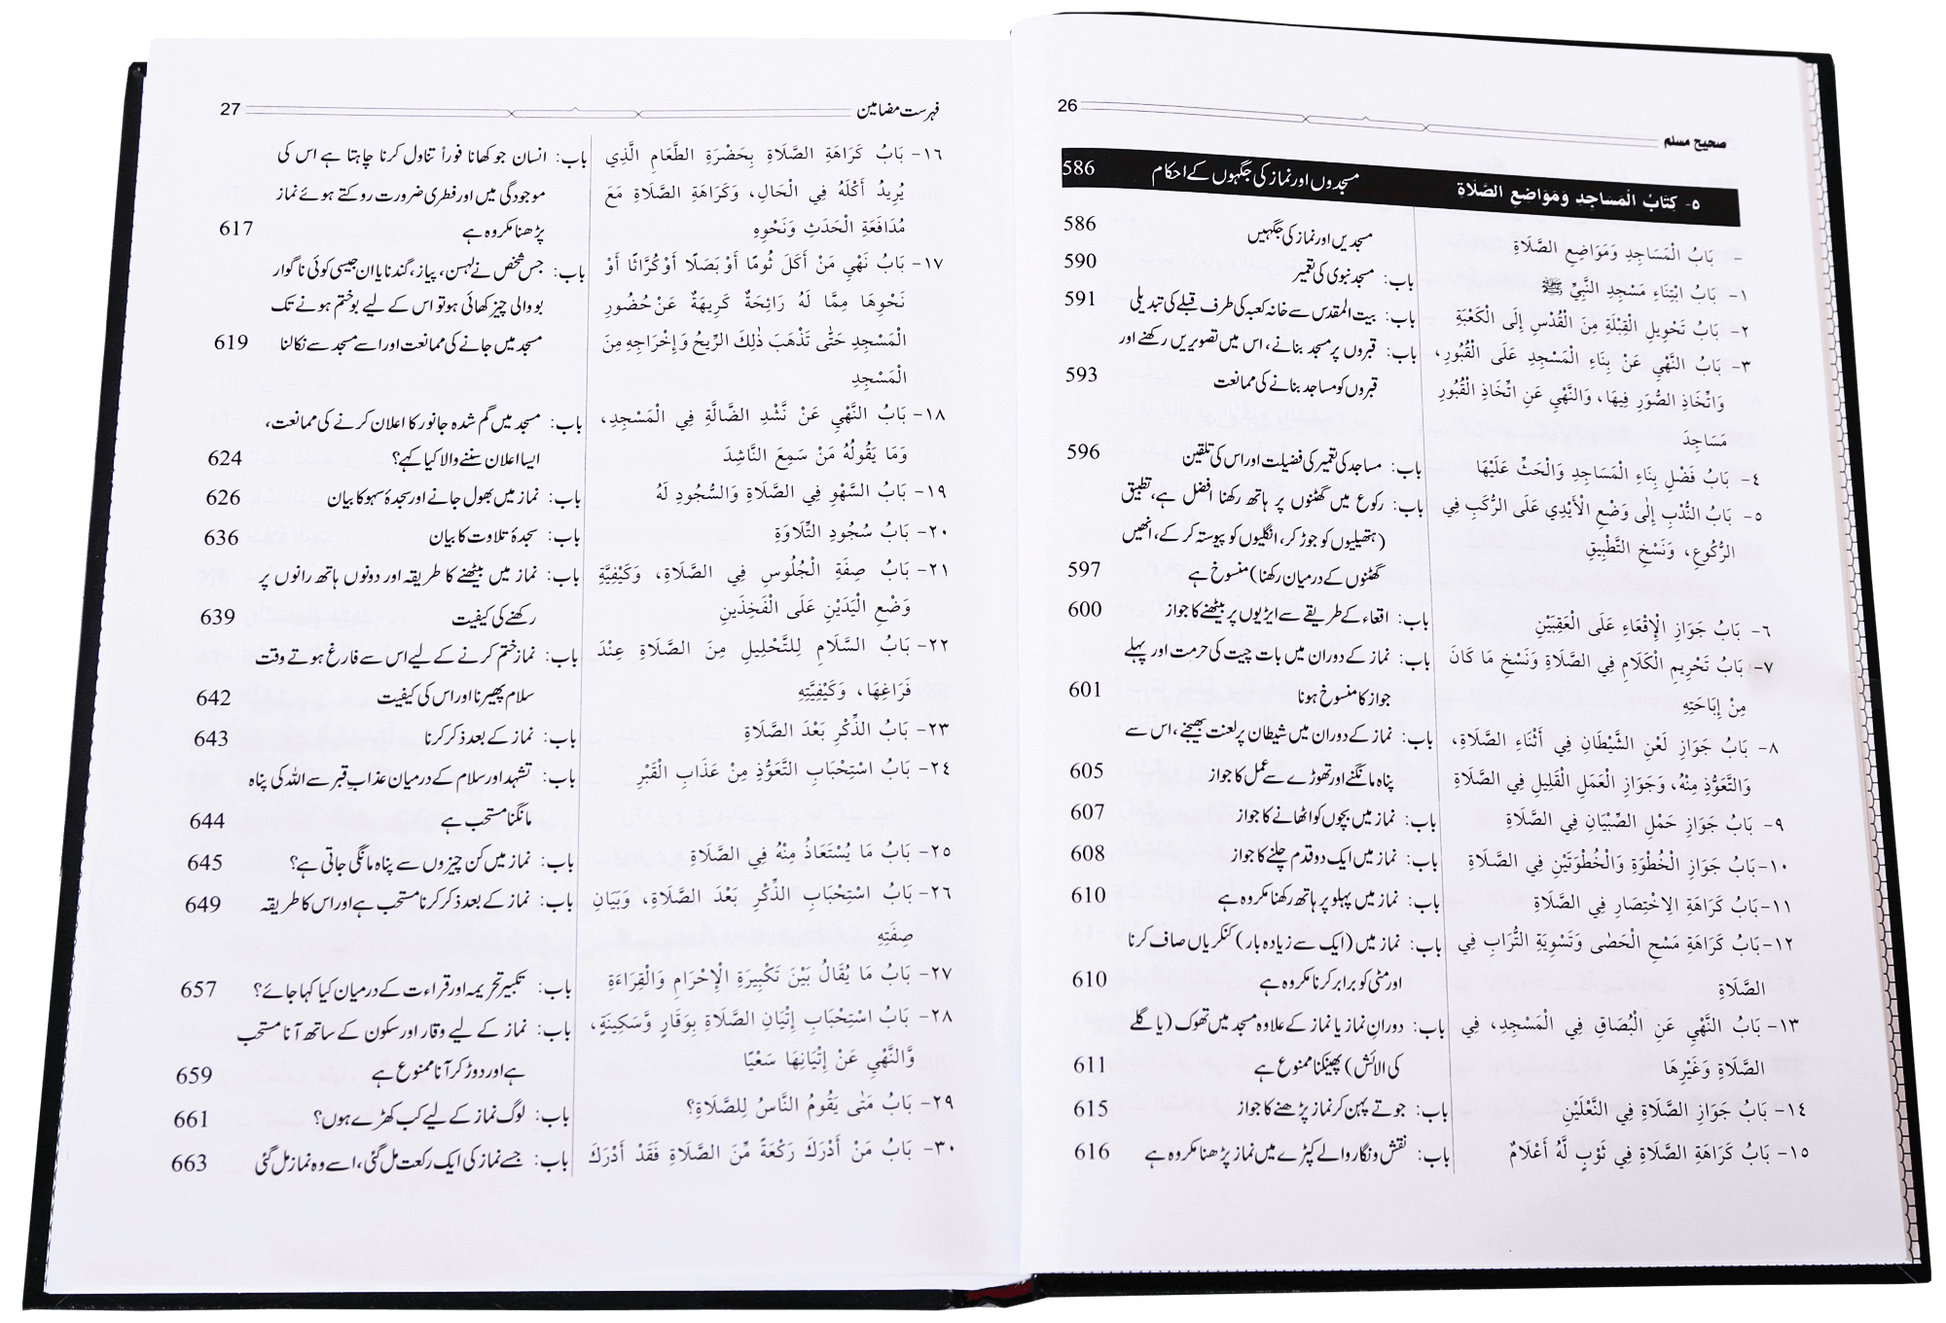 26
صحیح مسلم
٥- كِتَابُ الْمَسَاجِدِ وَمَوَاضِعِ الصَّلَاةِ مسجدوں اور نماز کی جگہوں کے احکام 586
- بَابُ الْمَسَاجِدِ وَمَوَاضِعِ الصَّلَاةِ مسجدیں اور نماز کی جگہیں 586
١- بَابُ ابْتِنَاءِ مَسْجِدِ النَّبِيِّ ﷺ باب: مسجد نبوی کی تعمیر 590
٢- بَابُ تَحْوِيلِ الْقِبْلَةِ مِنَ الْقُدْسِ إِلَى الْكَعْبَةِ باب: بیت المقدس سے خانہ کعبہ کی طرف قبلے کی تبدیلی 591
٣- بَابُ النَّهْيِ عَنْ بِنَاءِ الْمَسْجِدِ عَلَى الْقُبُورِ، باب: قبروں پر مسجد بنانے، اس میں تصویریں رکھنے اور
وَاتِّخَاذِ الصُّوَرِ فِيهَا، وَالنَّهْيِ عَنِ اتِّخَاذِ الْقُبُورِ قبروں کو مساجد بنانے کی ممانعت 593
مَسَاجِدَ
٤- بَابُ فَضْلِ بِنَاءِ الْمَسَاجِدِ وَالْحَثِّ عَلَيْهَا باب: مساجد کی تعمیر کی فضیلت اور اس کی تلقین 596
٥- بَابُ النَّدْبِ إِلٰى وَضْعِ الْأَيْدِي عَلَى الرُّكَبِ فِي باب: رکوع میں گھٹنوں پر ہاتھ رکھنا افضل ہے، تطبیق
الرُّكُوعِ، وَنَسْخِ التَّطْبِيقِ (ہتھیلیوں کو جوڑ کر، انگلیوں کو پیوستہ کر کے، انھیں
گھٹنوں کے درمیان رکھنا) منسوخ ہے 597
٦- بَابُ جَوَازِ الْإِقْعَاءِ عَلَى الْعَقِبَيْنِ باب: اقعاء کے طریقے سے ایڑیوں پر بیٹھنے کا جواز 600
٧- بَابُ تَحْرِيمِ الْكَلَامِ فِي الصَّلَاةِ وَنَسْخِ مَا كَانَ باب: نماز کے دوران میں بات چیت کی حرمت اور پہلے
مِنْ إِبَاحَتِهِ جواز کا منسوخ ہونا 601
٨- بَابُ جَوَازِ لَعْنِ الشَّيْطَانِ فِي أَثْنَاءِ الصَّلَاةِ، باب: نماز کے دوران میں شیطان پر لعنت بھیجنے، اس سے
وَالتَّعَوُّذِ مِنْهُ، وَجَوَازِ الْعَمَلِ الْقَلِيلِ فِي الصَّلَاةِ پناہ مانگنے اور تھوڑے سے عمل کا جواز 605
٩- بَابُ جَوَازِ حَمْلِ الصِّبْيَانِ فِي الصَّلَاةِ باب: نماز میں بچوں کو اٹھانے کا جواز 607
١٠- بَابُ جَوَازِ الْخُطْوَةِ وَالْخُطْوَتَيْنِ فِي الصَّلَاةِ باب: نماز میں ایک دو قدم چلنے کا جواز 608
١١- بَابُ كَرَاهَةِ الِاخْتِصَارِ فِي الصَّلَاةِ باب: نماز میں پہلو پر ہاتھ رکھنا مکروہ ہے 610
١٢- بَابُ كَرَاهَةِ مَسْحِ الْحَصٰى وَتَسْوِيَةِ التُّرَابِ فِي باب: نماز میں (ایک سے زیادہ بار) کنکریاں صاف کرنا
الصَّلَاةِ اور مٹی کو برابر کرنا مکروہ ہے 610
١٣- بَابُ النَّهْيِ عَنِ الْبُصَاقِ فِي الْمَسْجِدِ، فِي باب: دورانِ نماز یا نماز کے علاوہ مسجد میں تھوک (یا گلے
الصَّلَاةِ وَغَيْرِهَا کی الائش) پھینکنا ممنوع ہے 611
١٤- بَابُ جَوَازِ الصَّلَاةِ فِي النَّعْلَيْنِ باب: جوتے پہن کر نماز پڑھنے کا جواز 615
١٥- بَابُ كَرَاهَةِ الصَّلَاةِ فِي ثَوْبٍ لَّهُ أَعْلَامٌ باب: نقش و نگار والے کپڑے میں نماز پڑھنا مکروہ ہے 616
فہرست مضامین 27
١٦- بَابُ كَرَاهَةِ الصَّلَاةِ بِحَضْرَةِ الطَّعَامِ الَّذِي باب: انسان جو کھانا فوراً تناول کرنا چاہتا ہے اس کی
يُرِيدُ أَكْلَهُ فِي الْحَالِ، وَكَرَاهَةِ الصَّلَاةِ مَعَ موجودگی میں اور فطری ضرورت روکتے ہوئے نماز
مُدَافَعَةِ الْحَدَثِ وَنَحْوِهِ پڑھنا مکروہ ہے 617
١٧- بَابُ نَهْيِ مَنْ أَكَلَ ثُومًا أَوْ بَصَلًا أَوْ كُرَّاثًا أَوْ باب: جس شخص نے لہسن، پیاز، گندنا یا ان جیسی کوئی ناگوار
نَحْوِهَا مِمَّا لَهُ رَائِحَةٌ كَرِيهَةٌ عَنْ حُضُورِ بو والی چیز کھائی ہو تو اس کے لیے بو ختم ہونے تک
الْمَسْجِدِ حَتّٰى تَذْهَبَ ذٰلِكَ الرِّيحُ وَإِخْرَاجِهِ مِنَ مسجد میں جانے کی ممانعت اور اسے مسجد سے نکالنا 619
الْمَسْجِدِ
١٨- بَابُ النَّهْيِ عَنْ نَّشْدِ الضَّالَّةِ فِي الْمَسْجِدِ، باب: مسجد میں گم شدہ جانور کا اعلان کرنے کی ممانعت،
وَمَا يَقُولُهُ مَنْ سَمِعَ النَّاشِدَ ایسا اعلان سننے والا کیا کہے؟ 624
١٩- بَابُ السَّهْوِ فِي الصَّلَاةِ وَالسُّجُودِ لَهُ باب: نماز میں بھول جانے اور سجدۂ سہو کا بیان 626
٢٠- بَابُ سُجُودِ التِّلَاوَةِ باب: سجدۂ تلاوت کا بیان 636
٢١- بَابُ صِفَةِ الْجُلُوسِ فِي الصَّلَاةِ، وَكَيْفِيَّةِ باب: نماز میں بیٹھنے کا طریقہ اور دونوں ہاتھ رانوں پر
وَضْعِ الْيَدَيْنِ عَلَى الْفَخِذَيْنِ رکھنے کی کیفیت 639
٢٢- بَابُ السَّلَامِ لِلتَّحْلِيلِ مِنَ الصَّلَاةِ عِنْدَ باب: نماز ختم کرنے کے لیے اس سے فارغ ہوتے وقت
فَرَاغِهَا، وَكَيْفِيَّتِهِ سلام پھیرنا اور اس کی کیفیت 642
٢٣- بَابُ الذِّكْرِ بَعْدَ الصَّلَاةِ باب: نماز کے بعد ذکر کرنا 643
٢٤- بَابُ اسْتِحْبَابِ التَّعَوُّذِ مِنْ عَذَابِ الْقَبْرِ باب: تشہد اور سلام کے درمیان عذابِ قبر سے اللہ کی پناہ
مانگنا مستحب ہے 644
٢٥- بَابُ مَا يُسْتَعَاذُ مِنْهُ فِي الصَّلَاةِ باب: نماز میں کن چیزوں سے پناہ مانگی جاتی ہے؟ 645
٢٦- بَابُ اسْتِحْبَابِ الذِّكْرِ بَعْدَ الصَّلَاةِ، وَبَيَانِ باب: نماز کے بعد ذکر کرنا مستحب ہے اور اس کا طریقہ 649
صِفَتِهِ
٢٧- بَابُ مَا يُقَالُ بَيْنَ تَكْبِيرَةِ الْإِحْرَامِ وَالْقِرَاءَةِ باب: تکبیر تحریمہ اور قراءت کے درمیان کیا کہا جائے؟ 657
٢٨- بَابُ اسْتِحْبَابِ إِتْيَانِ الصَّلَاةِ بِوَقَارٍ وَّسَكِينَةٍ، باب: نماز کے لیے وقار اور سکون کے ساتھ آنا مستحب
وَّالنَّهْيِ عَنْ إِتْيَانِهَا سَعْيًا ہے اور دوڑ کر آنا ممنوع ہے 659
٢٩- بَابُ مَتٰى يَقُومُ النَّاسُ لِلصَّلَاةِ؟ باب: لوگ نماز کے لیے کب کھڑے ہوں؟ 661
٣٠- بَابُ مَنْ أَدْرَكَ رَكْعَةً مِّنَ الصَّلَاةِ فَقَدْ أَدْرَكَ باب: جسے نماز کی ایک رکعت مل گئی، اسے وہ نماز مل گئی 663